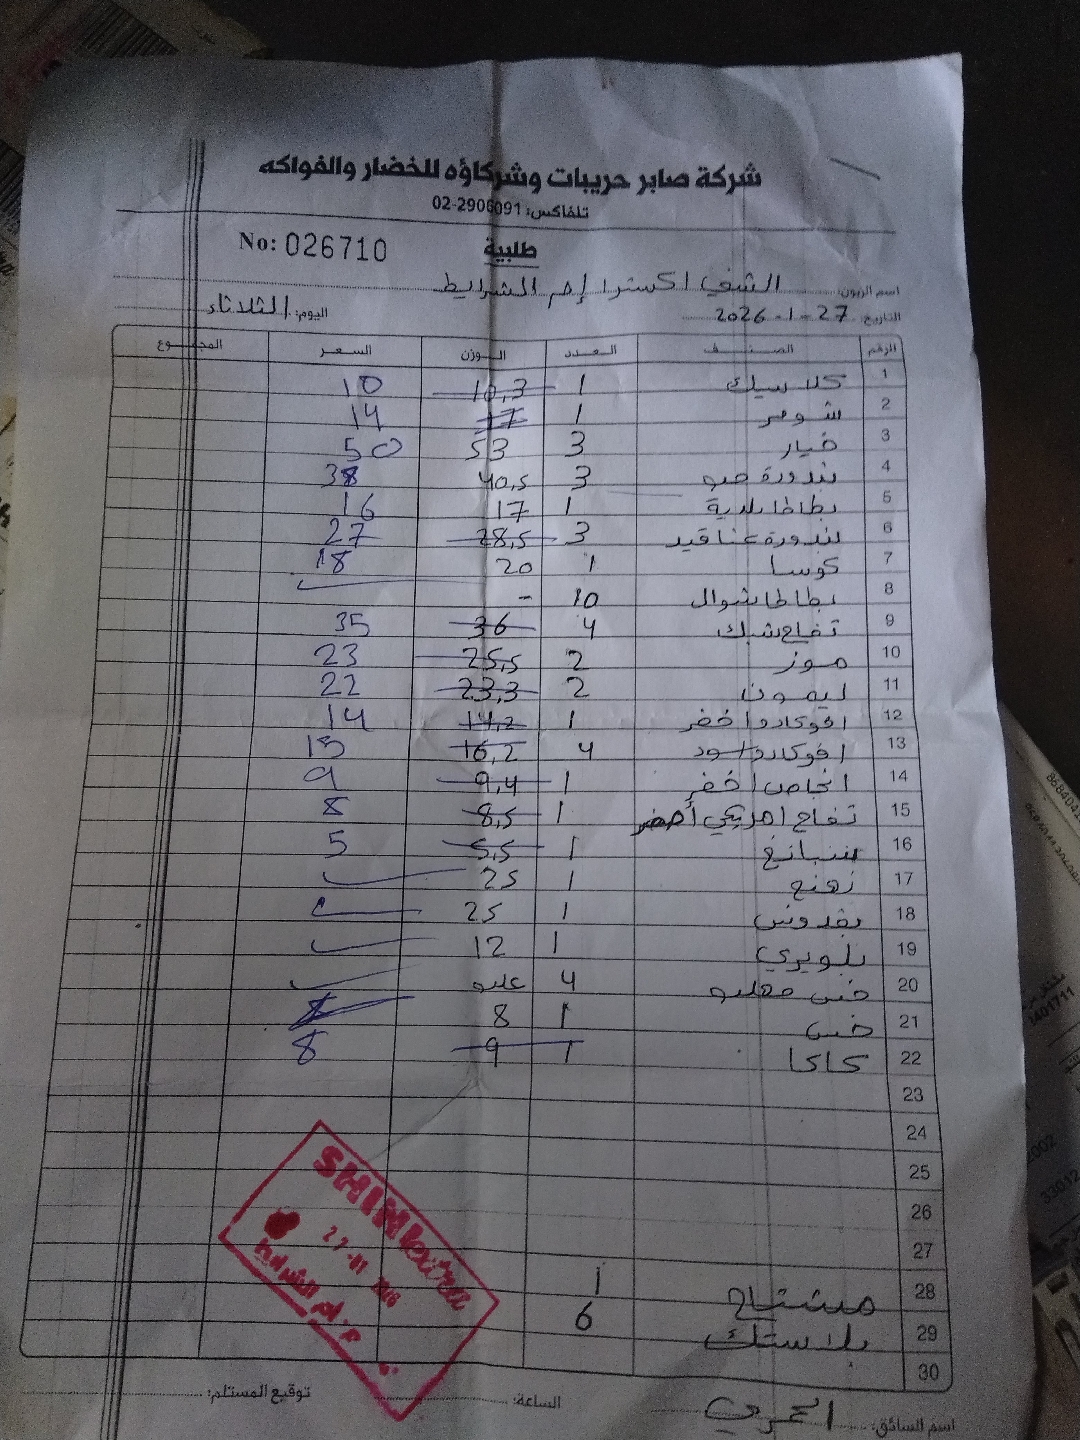 شركة صابر حريبات وشركاؤه للخضار والفواكه
تلفاكس: 02-2906091
No: 026710
طلبية
اسم الزبون: الشني اكسترا إم الشرايط
التاريخ: 27-1-2026 اليوم: الثلاثاء
الرقم الصنف العدد الوزن السعر المجموع
1 كلاسيك 1 10,3 10
2 شومر 1 17 14
3 خيار 3 53 50
4 بندورة حبه 3 40,5 38
5 بطاطا بلدية 1 17 16
6 بندورة عناقيد 3 28,5 27
7 كوسا 1 20 18
8 بطاطا شوال 10 -
9 تفاح شبك 4 36 35
10 موز 2 25,5 23
11 ليمون 2 23,3 22
12 افوكادو اخضر 1 14,2 14
13 افوكادو اسود 4 16,2 15
14 انجاص اخضر 1 9,4 9
15 تفاح امريكي أخضر 1 8,5 8
16 سبانخ 1 5,5 5
17 نعنع 1 25
18 بقدونس 1 25
19 بلوبيري 1 12
20 خس 4 علبه
21 خس 1 8
22 كاكا 1 9 8
23
24
25
26
27
28 مشتاح 1
29 بلاستك 6
30
SHINI extra
27
ام الشرايط
اسم السائق: العمري الساعة: توقيع المستلم: